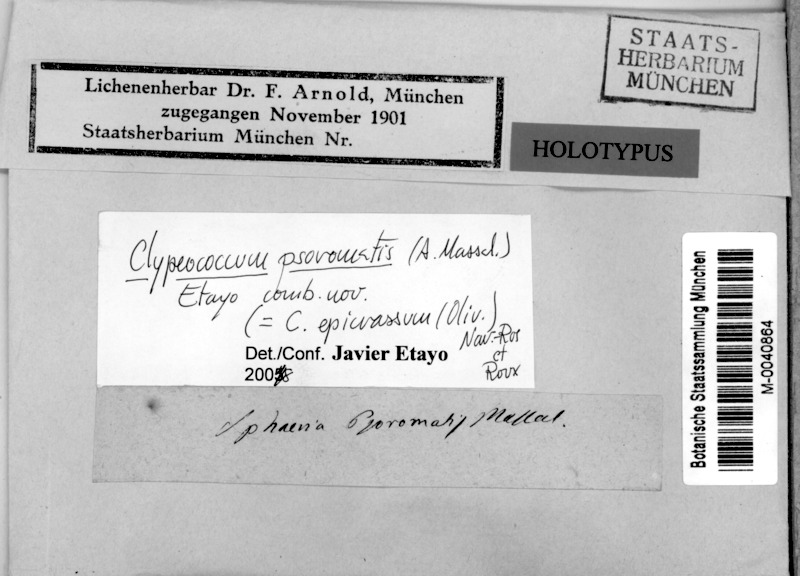 STAATS-
HERBARIUM
MÜNCHEN
Lichenenherbar Dr. F. Arnold, München
zugegangen November 1901
Staatsherbarium München Nr.
HOLOTYPUS
Clypeococcum psoromatis (A. Massal.)
Etayo comb. nov.
(= C. epicrassum (Oliv.)
Nav.-Ros
et
Roux
Det./Conf. Javier Etayo
2008
Sphaeria Psoromatis Massal.
Botanische Staatssammlung München
M-0040864